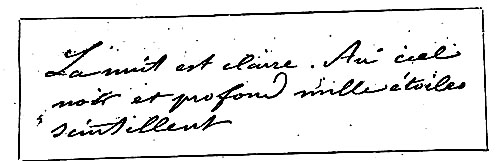 La nuit est claire. Au ciel
noir et profond mille étoiles
scintillent